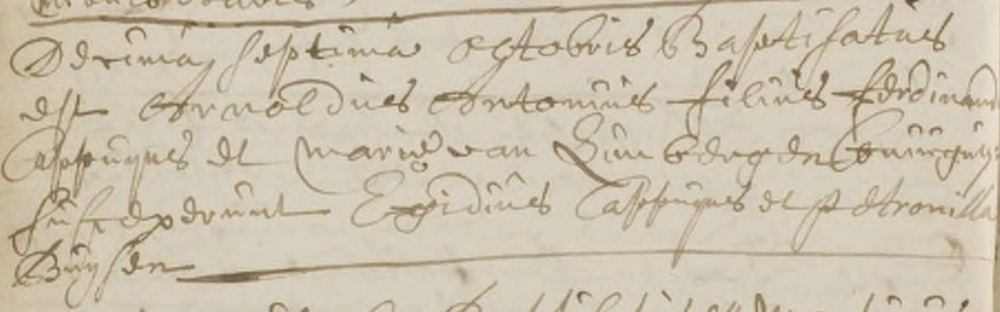 Decima septima octobris Baptisatus
est Arnoldus Antonius filius Ferdinand
Cappuyns et Mariæ van Limbergen coniugu
susceperunt Egidius Cappuyns et Petronilla
Buysen